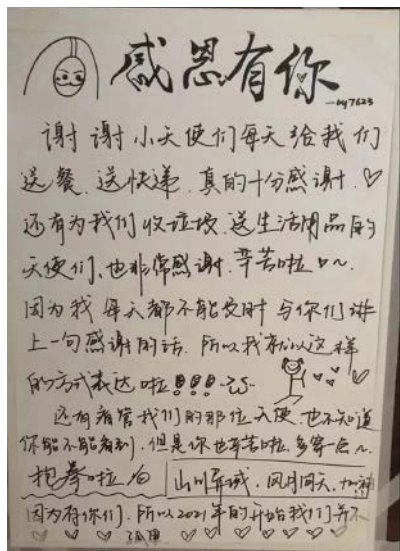 感恩有你
—by7623
谢谢小天使们每天给我们
送餐、送快递，真的十分感谢.♡
还有为我们收垃圾、送生活用品的
天使们、也非常感谢.辛苦啦口~.
因为我每天都不能及时与你们讲
上一句感谢的话.所以我就以这样
的方式表达啦!!!
还有看管我们的那位天使、也不知道
你能不能看到，但是你也辛苦啦，多穿一点~
抱拳啦 山川异域，风月同天，加油
因为有你们、所以2021年的开始我们并不
孤单